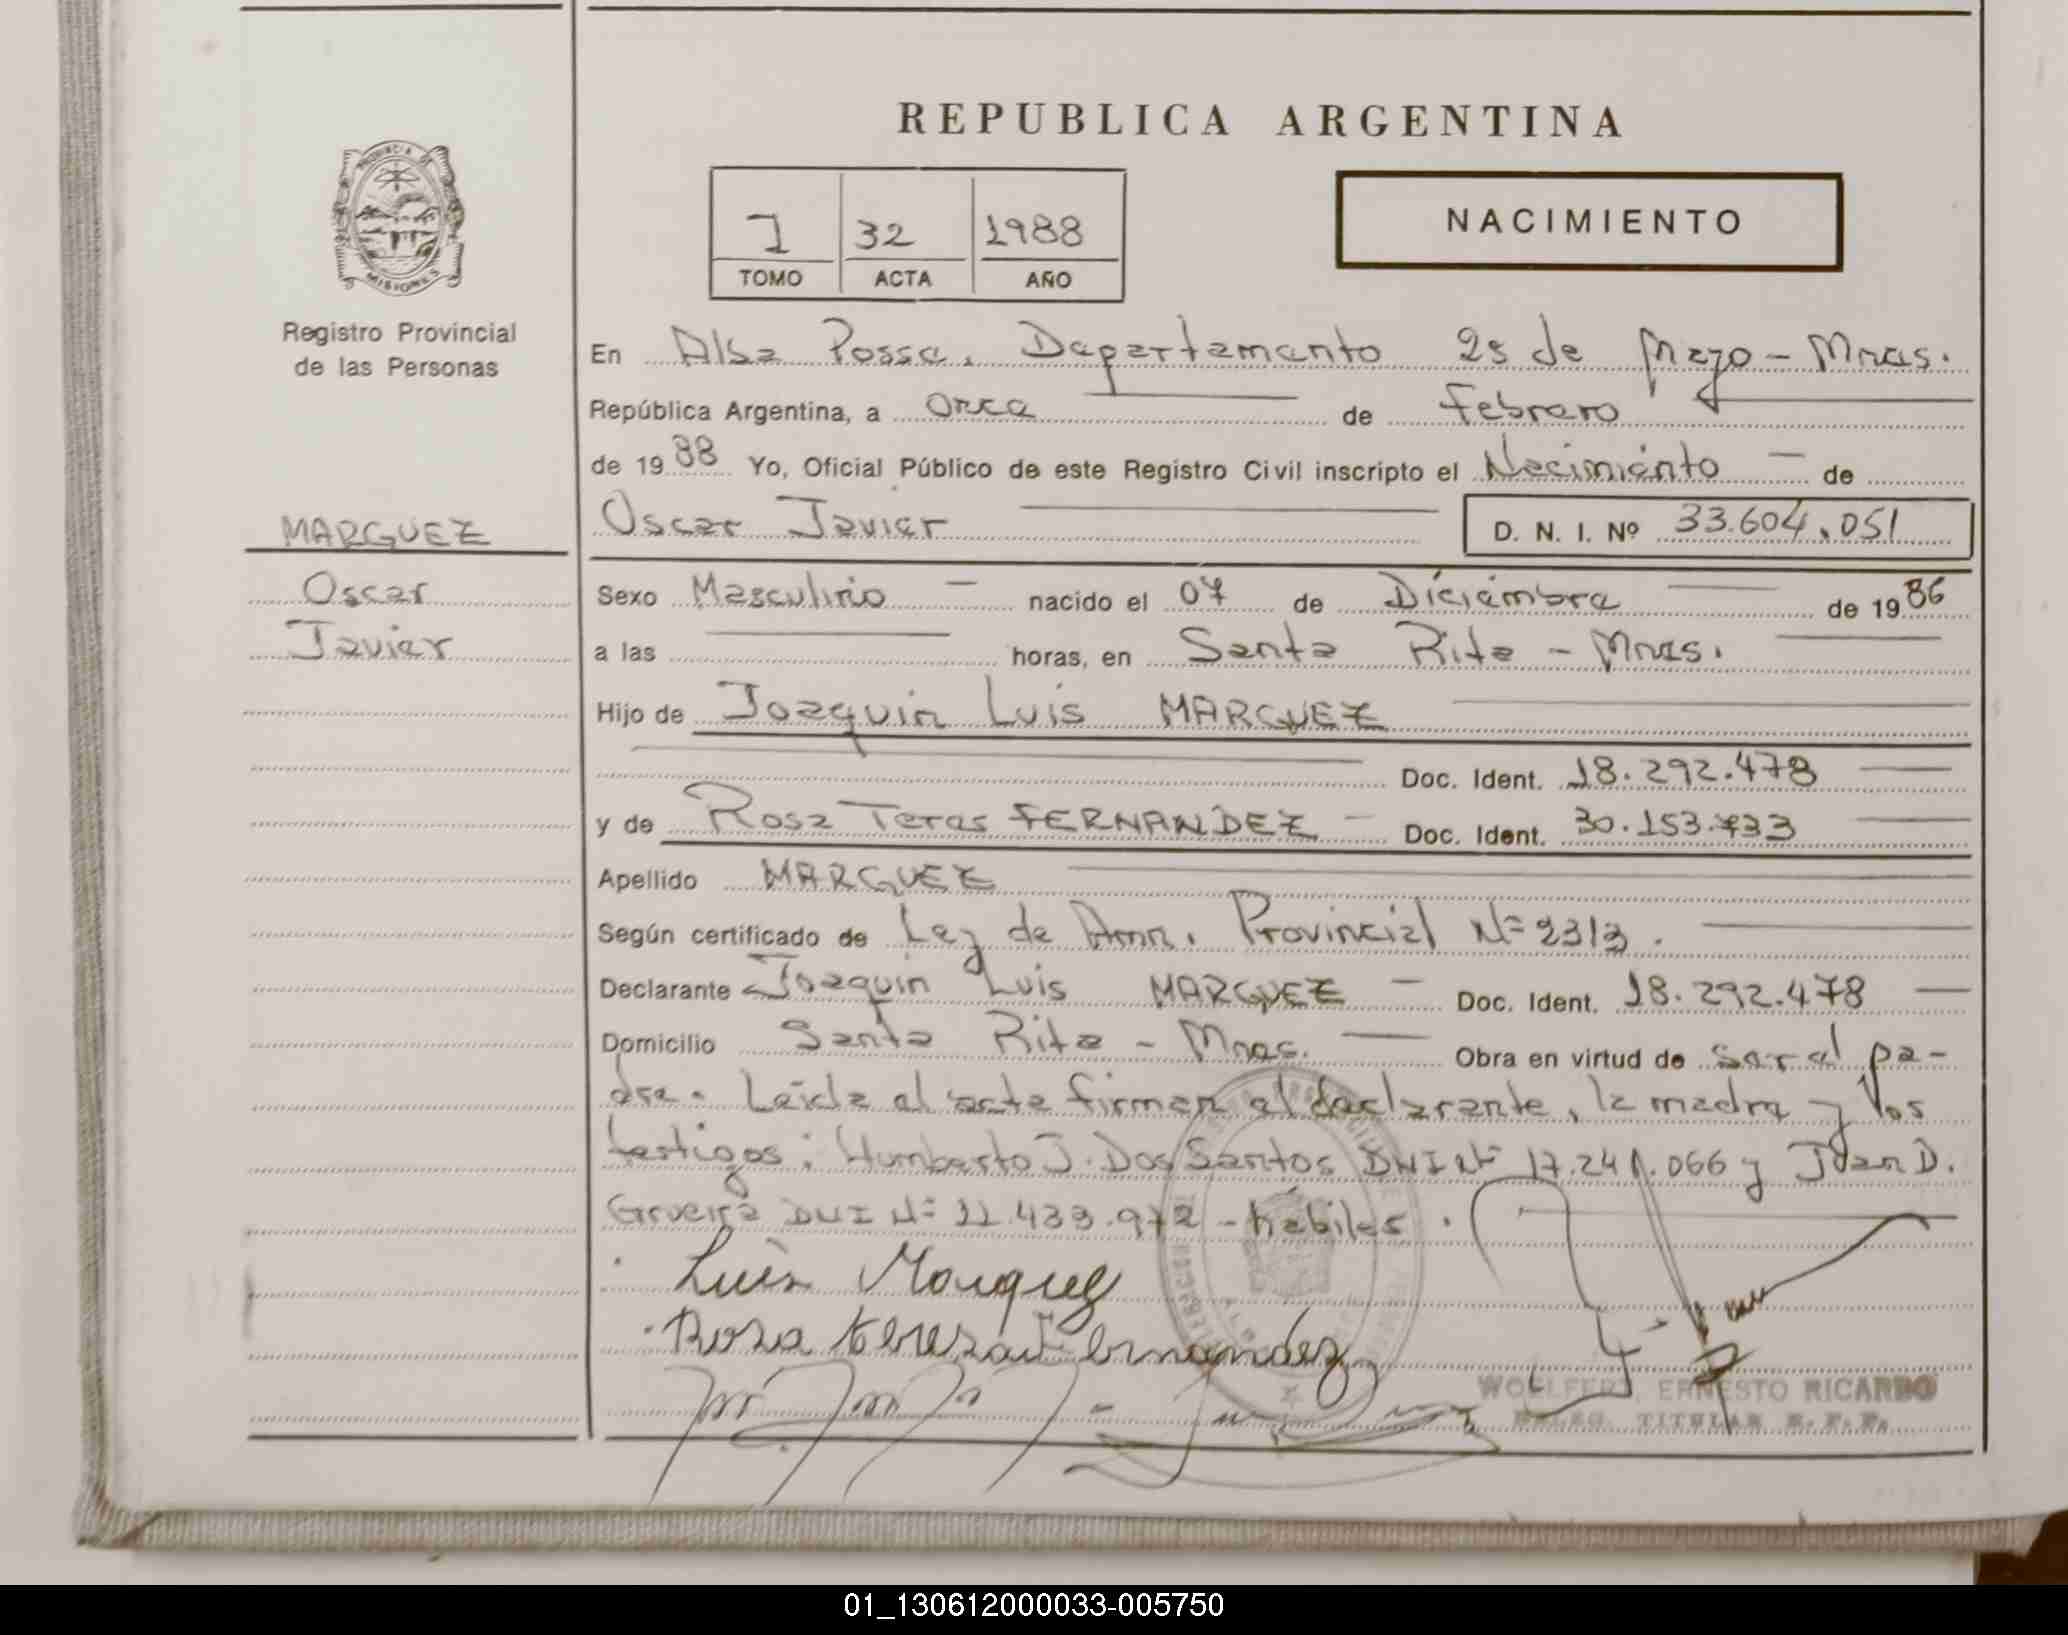 REPUBLICA ARGENTINA
PROVINCIA DE MISIONES
1 32 1988
TOMO ACTA AÑO
NACIMIENTO
Registro Provincial
de las Personas
En Alba Posse, Departamento 25 de Mayo - Mnes.
República Argentina, a once de Febrero
de 1988 Yo, Oficial Público de este Registro Civil inscripto el Nacimiento de
MARQUEZ
Oscar
Javier
Oscar Javier D. N. I. Nº 33.604.051
Sexo Masculino nacido el 07 de Diciembre de 1986
a las horas, en Santa Rita - Mnes.
Hijo de Joaquin Luis MARQUEZ
Doc. Ident. 18.292.478
y de Rosa Teres FERNANDEZ - Doc. Ident. 30.153.733
Apellido MARQUEZ
Según certificado de Ley de Amn. Provincial Nº 2313.
Declarante Joaquin Luis MARQUEZ - Doc. Ident. 18.292.478
Domicilio Santa Rita - Mnes. Obra en virtud de ser el pa-
dre. Leída el acta firman el declarante, la madre y los
testigos: Humberto J. Dos Santos DNI Nº 17.241.066 y Juan D.
DNI Nº 11.433.972 - hábiles.
Luis Marquez
Rosa tereza Fernández
WOELFERT, ERNESTO RICARDO
DELEG. TITULAR R.P.P.
01_130612000033-005750